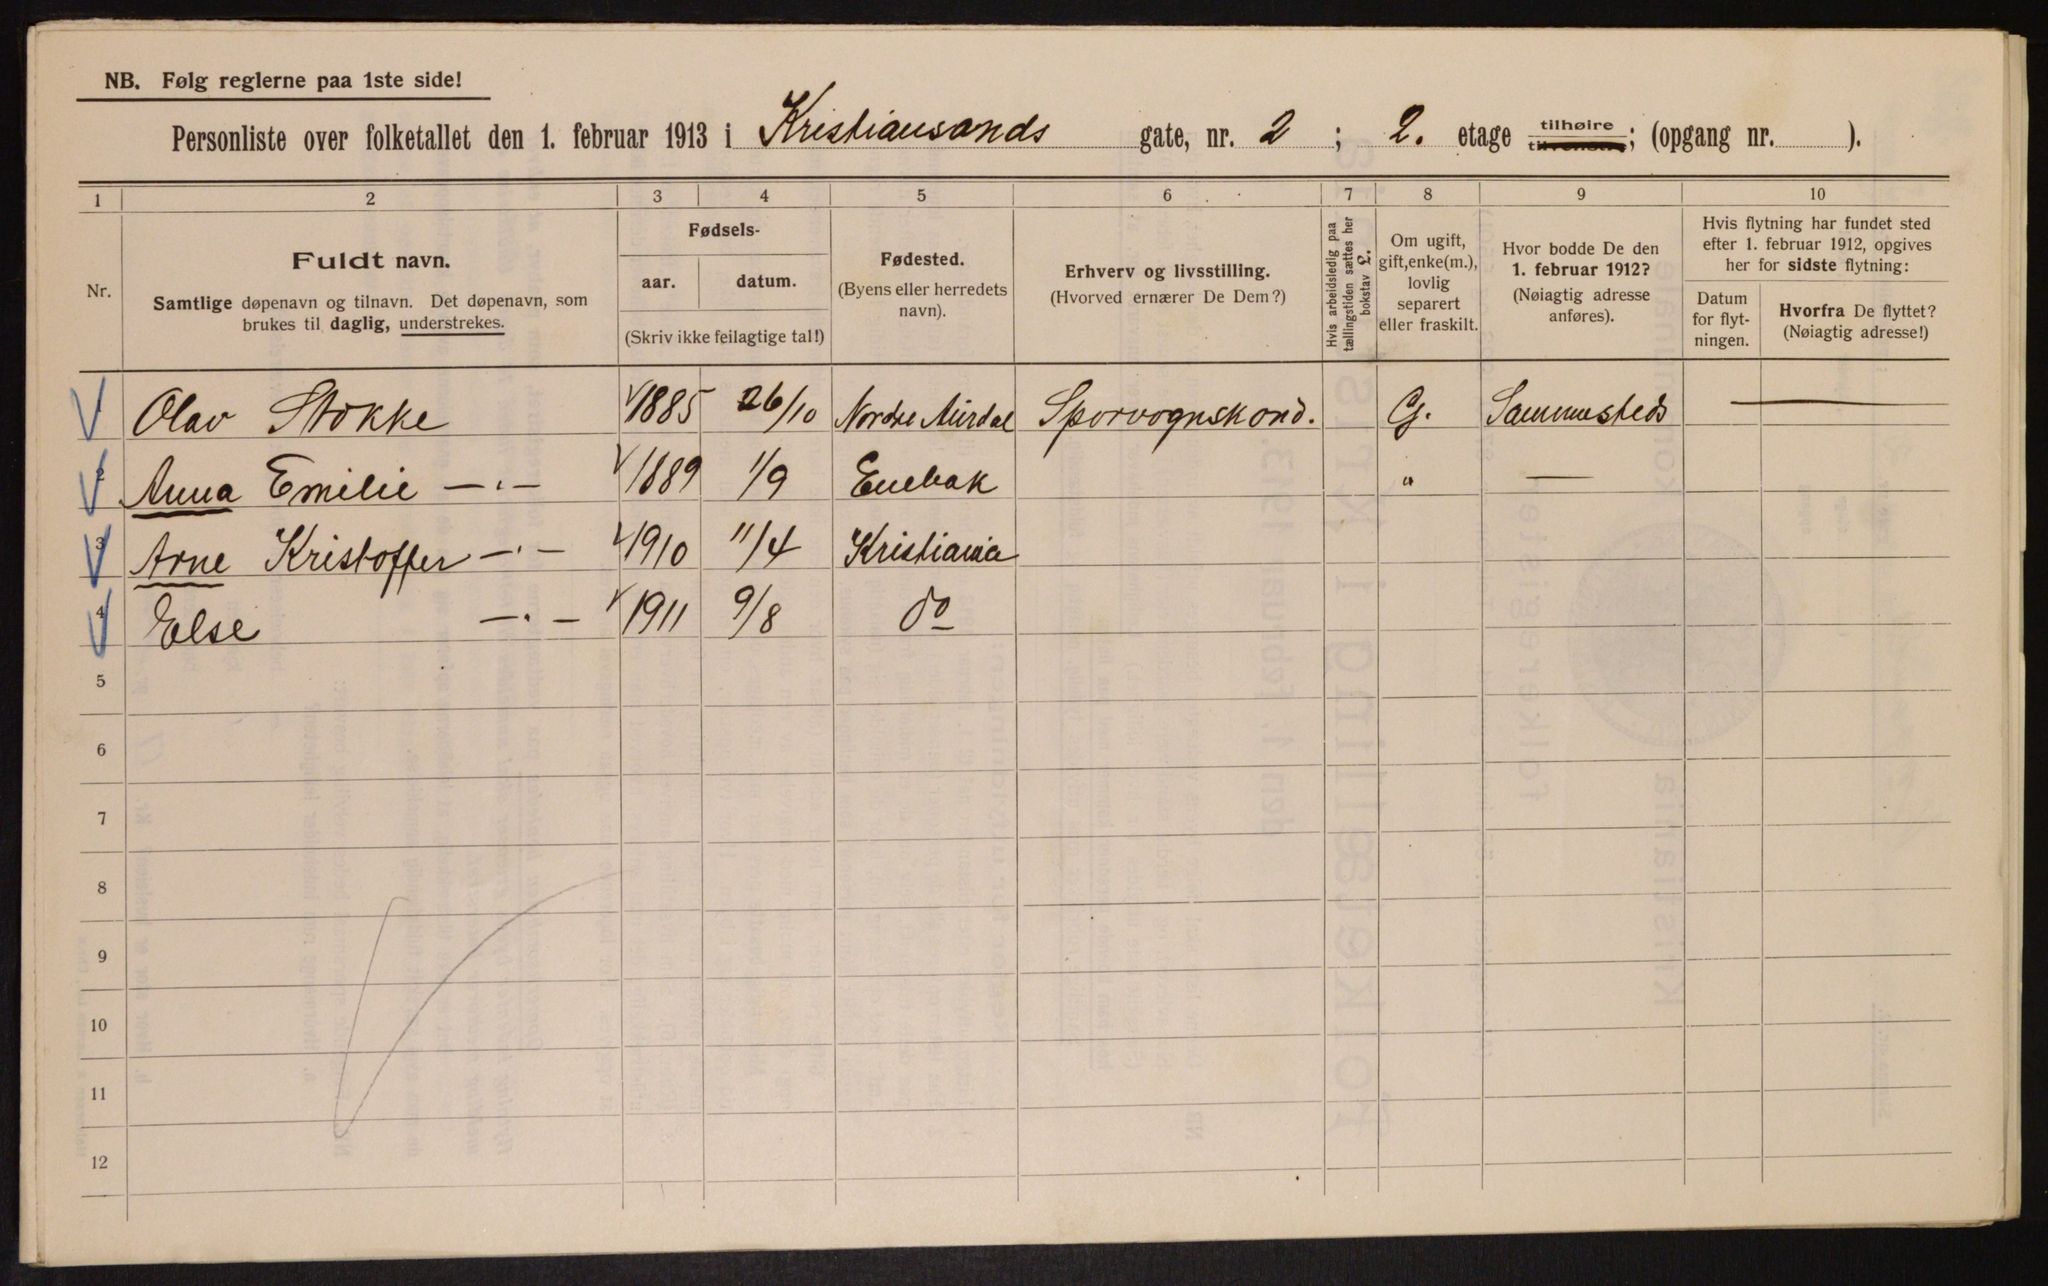 NB. Følg reglerne paa 1ste side!
Personliste over folketallet den 1. februar 1913 i Kristiansands gate, nr. 2 ; 2. etage tilhøire tilvenstre; (opgang nr. ).
1 2 3 4 5 6 7 8 9 10
Nr.
Fuldt navn.
Samtlige døpenavn og tilnavn. Det døpenavn, som
brukes til daglig, understrekes.
Fødsels-
aar. datum.
(Skriv ikke feilagtige tal!)
Fødested.
(Byens eller herredets
navn).
Erhverv og livsstilling.
(Hvorved ernærer De Dem?)
Hvis arbeidsledig paa
tællingstiden sættes her
bokstav L.
Om ugift,
gift, enke(m.),
lovlig
separert
eller fraskilt.
Hvor bodde De den
1. februar 1912?
(Nøiagtig adresse
anføres).
Hvis flytning har fundet sted
efter 1. februar 1912, opgives
her for sidste flytning:
Datum
for flyt-
ningen.
Hvorfra De flyttet?
(Nøiagtig adresse!)
Olav Stokke 1885 26/10 Nordre Aurdal Sporvognskond. G. Sammesteds —
2 Anna Emilie —"— 1889 1/9 Enebak " —
3 Arne Kristoffer —"— 1910 11/4 Kristiania
4 Else —"— 1911 9/8 do
5
6
7
8
9
10
11
12